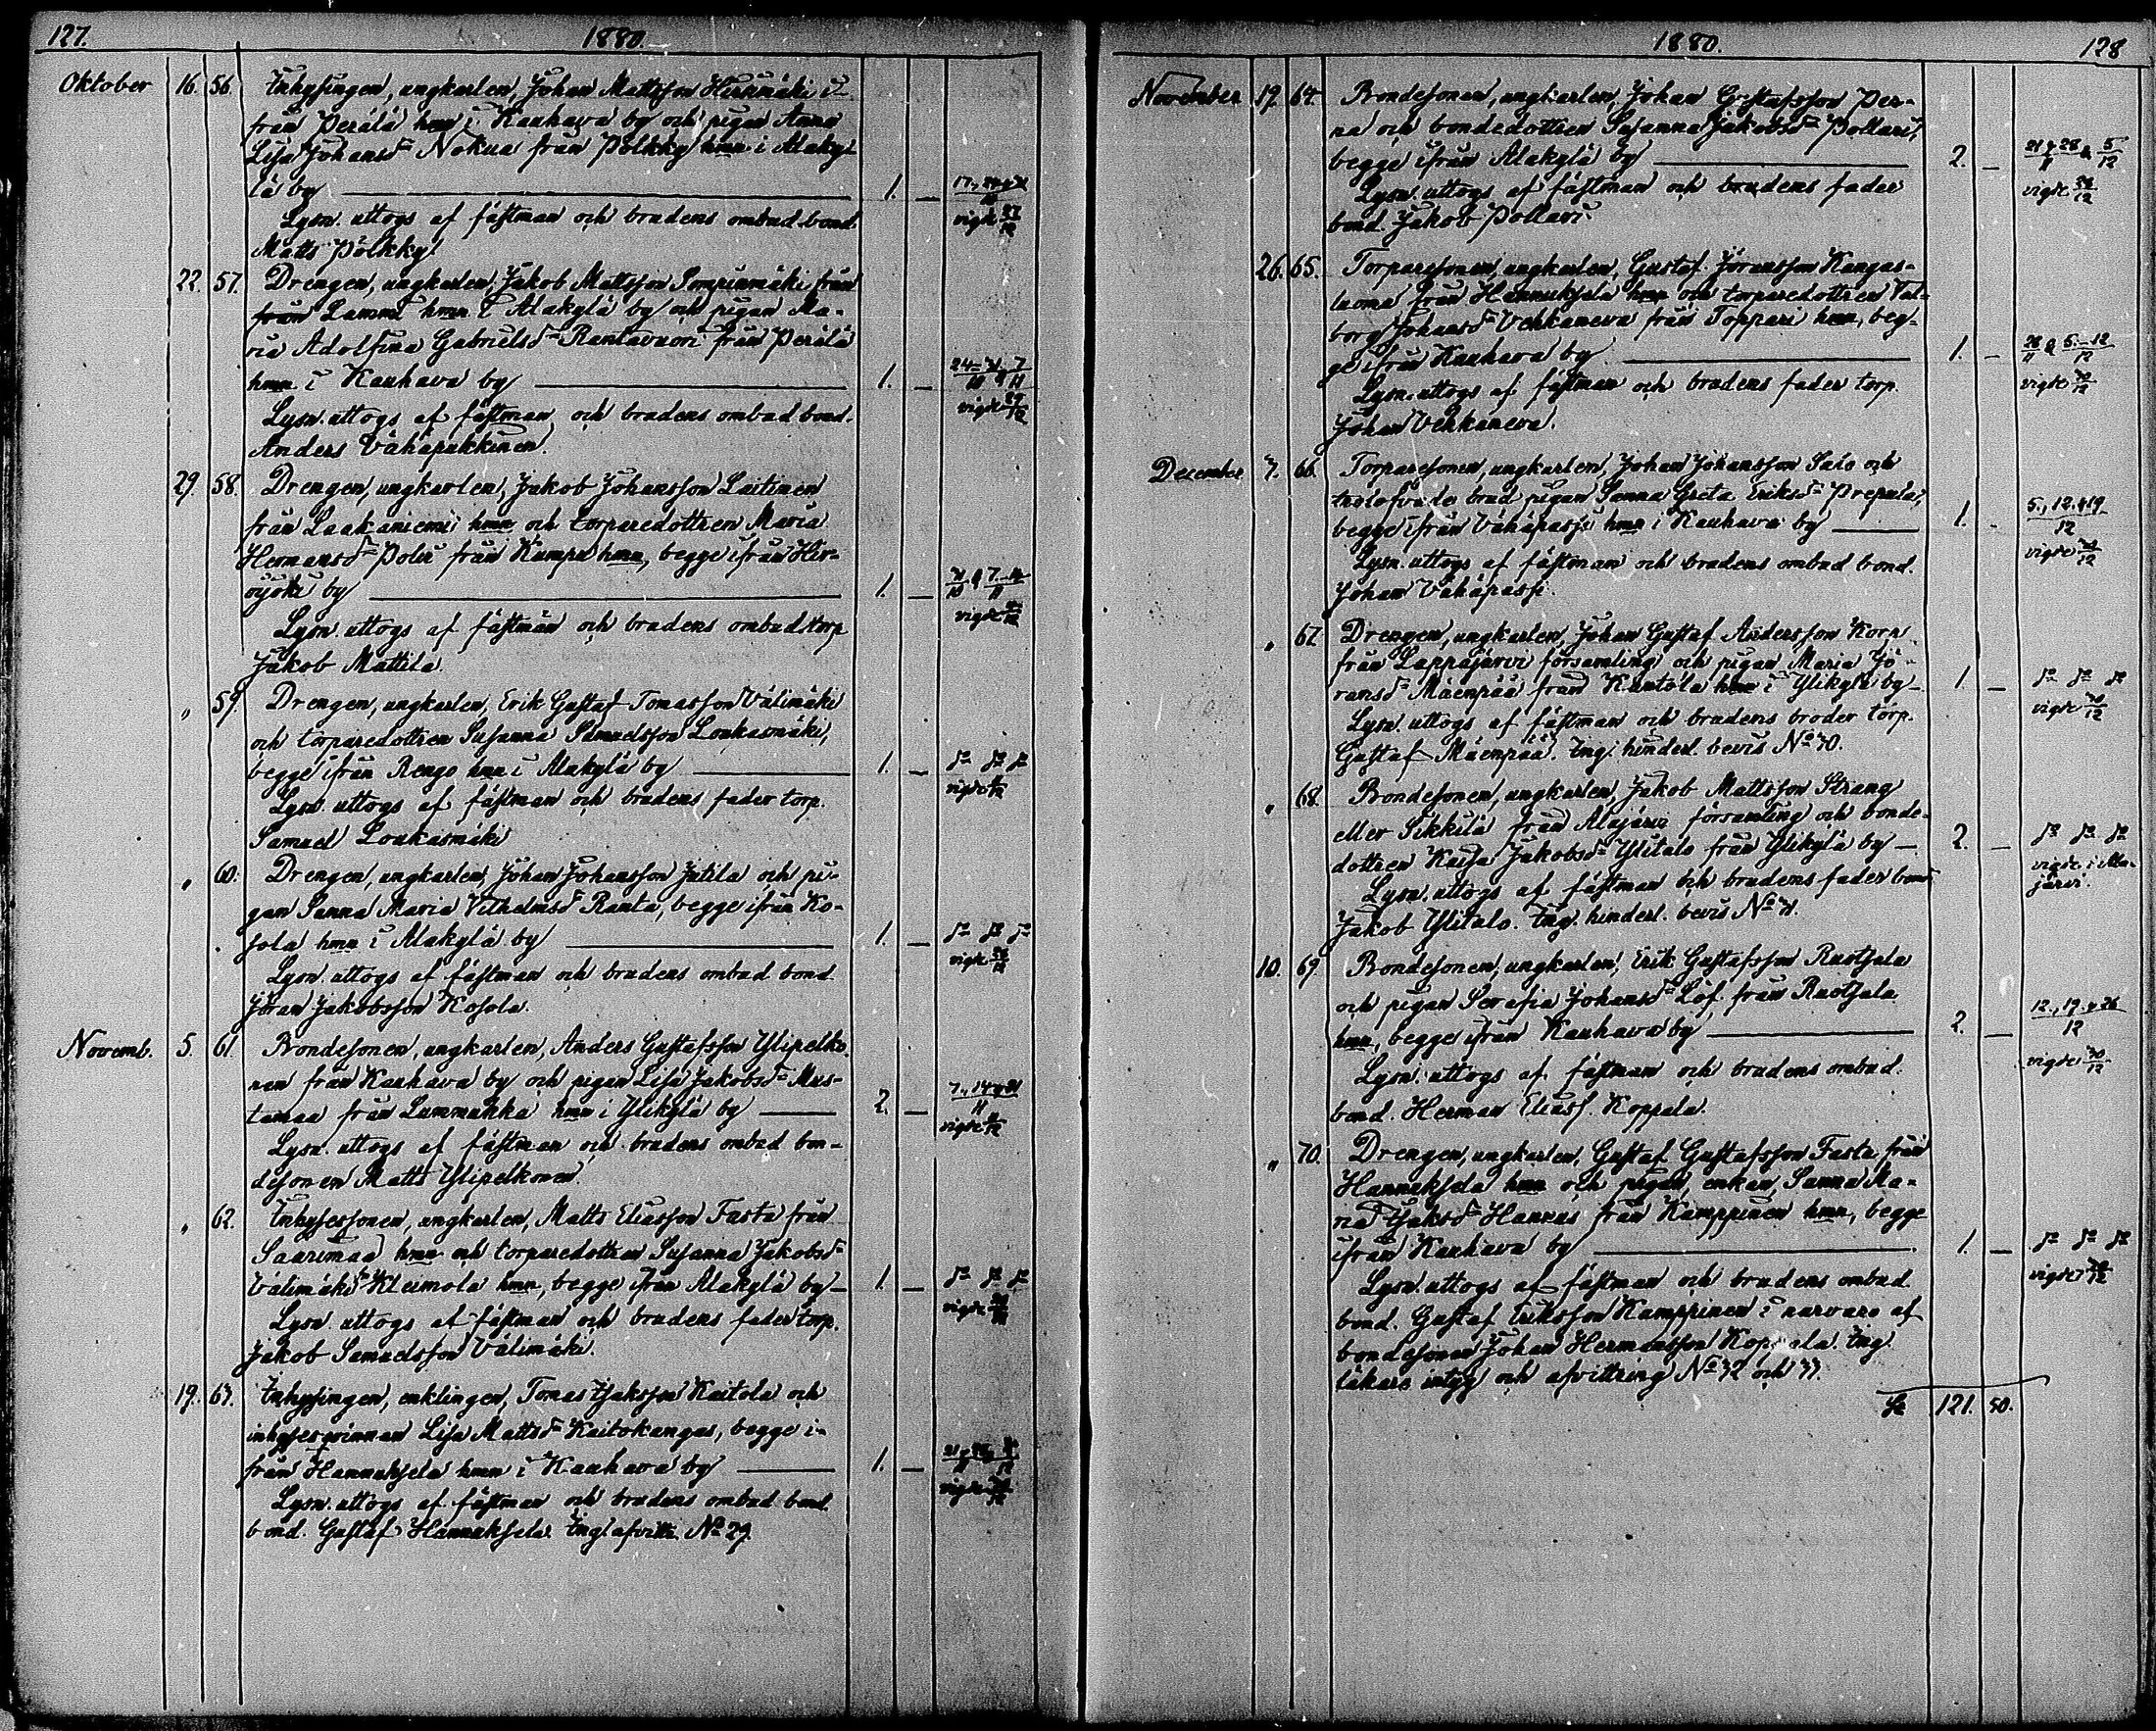 127.
1880.
Oktober 16. 56. Inhysingen, ungkarlen, Johan Mattsson
från Perälä hmn i Kauhava by och pigan Anna
Lisa Johansd:r Nokua från Pölkky hmn i Alaky-
lä by 1. —
Lysn. uttogs af fästman och brudens ombud bond.
Matts Pölkky.
vigde 27/12
22. 57. Drengen, ungkarlen, Jakob Mattsson från
från Lammi hmn i Alakylä by och pigan Ma-
ria Adolfina Gabrielsd:r Rantavuori från Perälä
hmn i Kauhava by 1. — 24 – 31/10 & 7/11
Lysn. uttogs af fästman och brudens ombud bond.
vigde 29/12
Anders Vähäpukkinen.
29. 58. Drengen, ungkarlen, Jakob Johansson Laitinen
från Laakaniemi hmn och torparedottren Maria
Hermansd:r från Kumpu hmn, begge ifrån Hir-
vijoki by 1. — 31/10 & 7–14/11
Lysn. uttogs af fästman och brudens ombud torp
vigde
Jakob Mattila.
„ 59. Drengen, ungkarlen, Erik Gustaf Tomasson Välimäki
och torparedottren Susanna Samuelsson Loukasmäki,
begge ifrån Rengo hmn i Alakylä by 1. — d:o d:o d:o
Lysn. uttogs af fästman och brudens fader torp.
vigde
Samuel Loukasmäki
„ 60. Drengen, ungkarlen, Johan Johansson Jutila och pi-
gan Sanna Maria Vilhelmsd:r Ranta, begge ifrån Ko-
sola hmn i Alakylä by 1. — d:o d:o d:o
Lysn. uttogs af fästman och brudens ombud bond
vigde
Jöran Jakobsson Kosola.
Novemb. 5. 61. Bondesonen, ungkarlen, Anders Gustafsson Ylipelko-
nen från Kauhava by och pigan Lisa Jakobsd:r Mus-
tamaa från Lammakka hmn i Ylikylä by 2. — 7, 14 & 21/11
Lysn. uttogs af fästman och brudens ombud bon-
vigde
desonen Matts Ylipelkonen.
„ 62. Inhysessonen, ungkarlen, Matts Eliasson Fasta från
Saarimaa hmn och torparedottren Susanna Jakobsd:r
Välimäki Kleimola hmn, begge ifrån Alakylä by 1. — d:o d:o d:o
Lysn. uttogs af fästman och brudens fader torp.
vigde
Jakob Samuelsson Välimäki.
19. 63. Inhysingen, enklingen, Tomas Isaksson Kaitola och
inhysesqvinnan Lisa Mattsd:r Kaitokangas, begge i-
från Hannuksela hmn i Kauhava by 1. —
Lysn. uttogs af fästman och brudens ombud bond.
vigde
bond. Gustaf Hannuksela. Ing. afvittr. No 29.
1880.
128
November 19. 64. Bondesonen, ungkarlen, Johan Gustafsson Per-
na och bondedottren Susanna Jakobsd:r Pollari,
begge ifrån Alakylä by 2. — 21 & 28/11 & 5/12
Lysn. uttogs af fästman och brudens fader
vigde
bond. Jakob Pollari.
26. 65. Torparesonen, ungkarlen, Gustaf Jöransson Kangas-
luoma från Hannuksela hmn och torparedottren Val-
borg Johansd:r Vehkaneva från Toppari hmn, beg-
ge ifrån Kauhava by 1. — 28/11 & 5–12/12
Lysn. uttogs af fästman och brudens fader torp.
vigde
Johan Vehkaneva.
December 7. 66. Torparesonen, ungkarlen, Johan Johansson Salo och
trolofvade brud pigan Sanna Greta Eriksd:r
begge ifrån Vähäpassi hmn i Kauhava by 1. — 5, 12 & 19/12
Lysn. uttogs af fästman och brudens ombud bond.
vigde 30/12
Johan Vähäpassi.
„ 67. Drengen, ungkarlen, Johan Gustaf Andersson Korpi
från Lappajärvi församling och pigan Maria Jö-
ransd:r Mäenpää från Kantola hmn i Ylikylä by 1. — d:o d:o d:o
Lysn. uttogs af fästman och brudens broder torp.
vigde 30/12
Gustaf Mäenpää. Ing. hinderl. bevis No 30.
„ 68. Bondesonen, ungkarlen, Jakob Mattsson Strang
eller Sikkilä från Alajärvi församling och bonde-
dottren Kaisa Jakobsd:r Ylitalo från Ylikylä by 2. — d:o d:o d:o
Lysn. uttogs af fästman och brudens fader bond.
vigde i Ala-
järvi.
Jakob Ylitalo. Ing. hinderl. bevis No 31.
10. 69. Bondesonen, ungkarlen, Erik Gustafsson Ruotsala
och pigan Serafia Johansd:r Löf från Ruotsala
hmn, begge ifrån Kauhava by 2. — 12, 19 & 26/12
Lysn. uttogs af fästman och brudens ombud.
vigde 30/12
bond. Herman Eliass. Koppala.
„ 70. Drengen, ungkarlen, Gustaf Gustafsson Fasta från
Hannuksela hmn och pigan, enkan, Sanna Ma-
ria Isaksd:r från Kamppinen hmn, begge
ifrån Kauhava by 1. — d:o d:o d:o
Lysn. uttogs af fästman och brudens ombud
vigde
bond. Gustaf Eriksson Kamppinen i närvaro af
bondesonen Johan Hermansson Koppala. Ing.
läkare intyg och afvittring No 32 och 33.
S:a 121. 50.